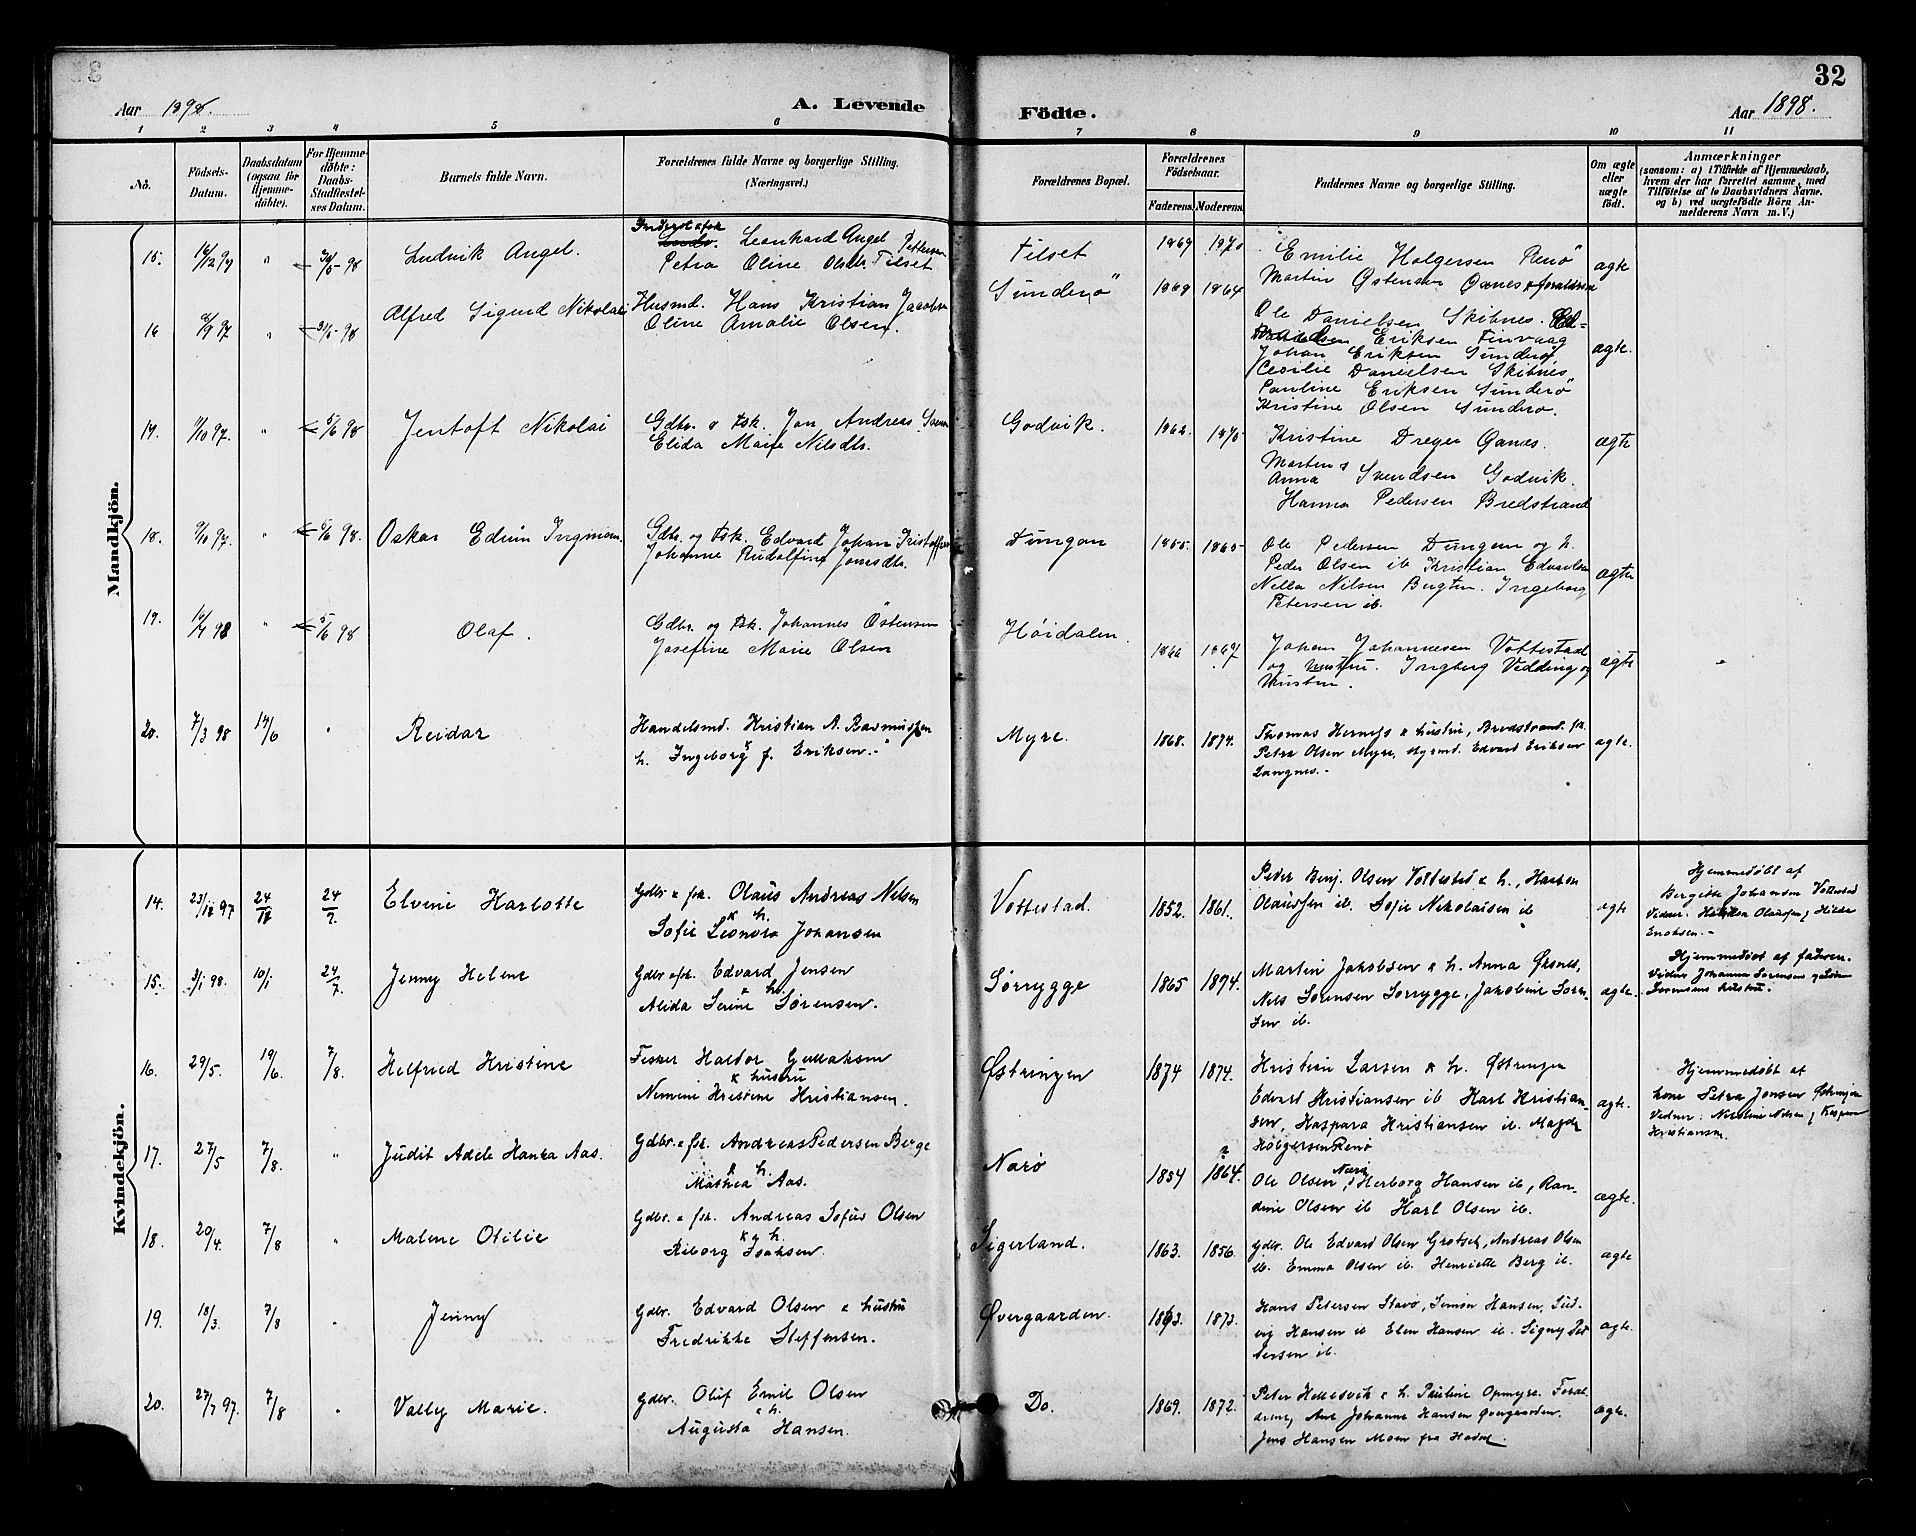 32
Aar 1898.
A. Levende
Födte.
Aar 1898.
1 2 3 4 5 6 7 8 9 10 11
No.
Födsels-Datum.
Daabsdatum (ogsaa for Hjemme-döbte).
For Hjemme-döbte: Daabs-Stadfæstel-ses Datum.
Barnets fulde Navn.
Forældrenes fulde Navne og borgerlige Stilling.
(Næringsvei.)
Forældrenes Bopæl.
Forældrenes Födselsaar.
Faderens. Moderens.
Faddernes Navne og borgerlige Stilling.
Om ægte eller uægte födt.
Anmærkninger
(saasom: a) i Tilfælde af Hjemmedaab,
hvem der har forrettet samme, med
Tilföielse af to Daabsvidners Navne,
og b) ved uægtefödte Börn An-
melderens Navn m. V.)
Mandkjön.
15. Ludvik Angel.
Leonhard Angel Pettersen
Petra Oline Olsdtr Tilset
Tilset
1869 1870
Emilie Holgersen Renø
Martin Østensen Øxnes & forældrene
ægte
16 Alfred Sigurd Nikolai
Husmd. Hans Kristian Jacobsen
Oline Amalie Olsen.
Sunderø
1869 1864
Ole Danielsen Skibnes.
Eriksen Finvaag
Johan Eriksen Sunderø,
Cecilie Danielsen Skibnes
Pauline Eriksen Sunderø
Kristine Olsen Sunderø.
ægte.
17. 97. " 5/6 98 Jentoft Nikolai
Gdbr. & Fsk. Jon Andreas
Elida Marie Nilsdtr.
Godvik.
1862. 1875
Kristine Dreyer Øxnes.
Martin &
Anna Svendsen Godvik.
Hanna Pedersen Bredstrand
ægte
18. 97. " 5/6 98. Oskar Edvin Ingmann.
Gdbr. og Fsk. Edvard Johan Kristoffersen
Johanne Rudolfine Jonsdtr.
Tungan
1855. 1865
Ole Pedersen Dungen og h.
Peder Olsen ib Kristian Edvardsen
Nella Nilsen Bugten. Ingeborg
Petersen ib.
ægte
19. 98 " 5/6 98 Olaf.
Gdbr. og Fsk. Johannes Östensen
Josefine Marie Olsen
Høidalen.
1866 1867
Johan Johannesen Vottestad
og hustru. Ingberg Vedding og
hustru.
ægte
20. 7/3 98 19/6 " Reidar
Handelsmd. Kristian A. Rasmussen
h. Ingeborg f. Eriksen.
Myre.
1868. 1874.
Thomas Hernes & hustru, Bredstrand. fk.
Petra Olsen Myre, styrmd. Edvard Eriksen
Langnes.
ægte.
Kvindekjön.
14. 23/12 97 24/12 24/7. Elvine Karlotte
Gdbr & fsk. Olaus Andreas Nilsen
& h.
Sofie Leonora Johansen
Vottestad.
1852. 1861.
Peder Benj. Olsen Vottestad & h.,
Olaussen ib. Sofie Nikolaisen ib
egte
Hjemmedøbt af
Bergitte Johansen Vottestad
Vidner: Olaussen, Hilda
Enoksen.-
15. 3/1 98. 10/1 24/7 Jenny Helene
Gdbr & fsk. Edvard Jensen
& h.
Alida Serine Sørensen.
Sørrygge
1865 1874.
Martin Jakobsen & h. Anna Øksnes,
Nels Sørensen Sørrygge, Jakobine Søren-
sen ib.
ægte.
Hjemmedøbt af faderen.
Vidner Johanna Sørensen &
Sørensens hustru.
16. 29/5. 19/6 7/8. Helfried Kristine
Fisker Haldor
& hustru
Nimine Kristine Kristiansen.
Østringen
1874 1874.
Kristian Larsen & h. Østringen
Edvard Kristiansen ib Karl Kristian-
sen, Kaspara Kristiansen ib. Magda
Holgersen Renø
ægte.
Hjemmedøbt af
kone Petra Jensen Østringen
Vidner: Nilsen & Kaspara
Kristiansen
17. 27/5 7/8. " Judit Adele Hanka Aas.
Gdbr. & fsk. Andreas Pedersen Berge
& h.
Mathea Aas.
Narø
1854 1864.
Narø
Ole Olsen, Herborg Hansen ib, Ran-
dine Olsen ib Karl Olsen ib.
ægte.
18. 20/4. 7/8 " Malene Otilie
Gdbr. & fsk. Andreas Sofus Olsen
& h.
Riborg Isaksen.
Sigerland.
1863. 1856.
Gdbr. Ole Edvard Olsen Grotset, Andreas Olsen
ib. Emma Olsen ib. Henriette Berg ib.
ægte
19. 18/3. 7/8 " Jenny
Gdbr. Edvard Olsen & hustru
Fredrikke Steffensen.
Øvergaarden.
1863. 1873.
Hans Petersen Stavø, Simon Hansen, Lud-
vig Hansen ib Elen Hansen ib. Signy Pet
tersen ib.
ægte.
20. 27/7 97. 7/8 " Valby Marie.
Gdbr. Oluf Emil Olsen
& h.
Augusta Hansen.
Do.
1869. 1872.
Peter Hellesvik & h. Pauline Opmyre. Foræl-
drene, Ane Johanne Hansen Øvergaarden.
Jens Hansen Moen fra Hadsel
ægte.